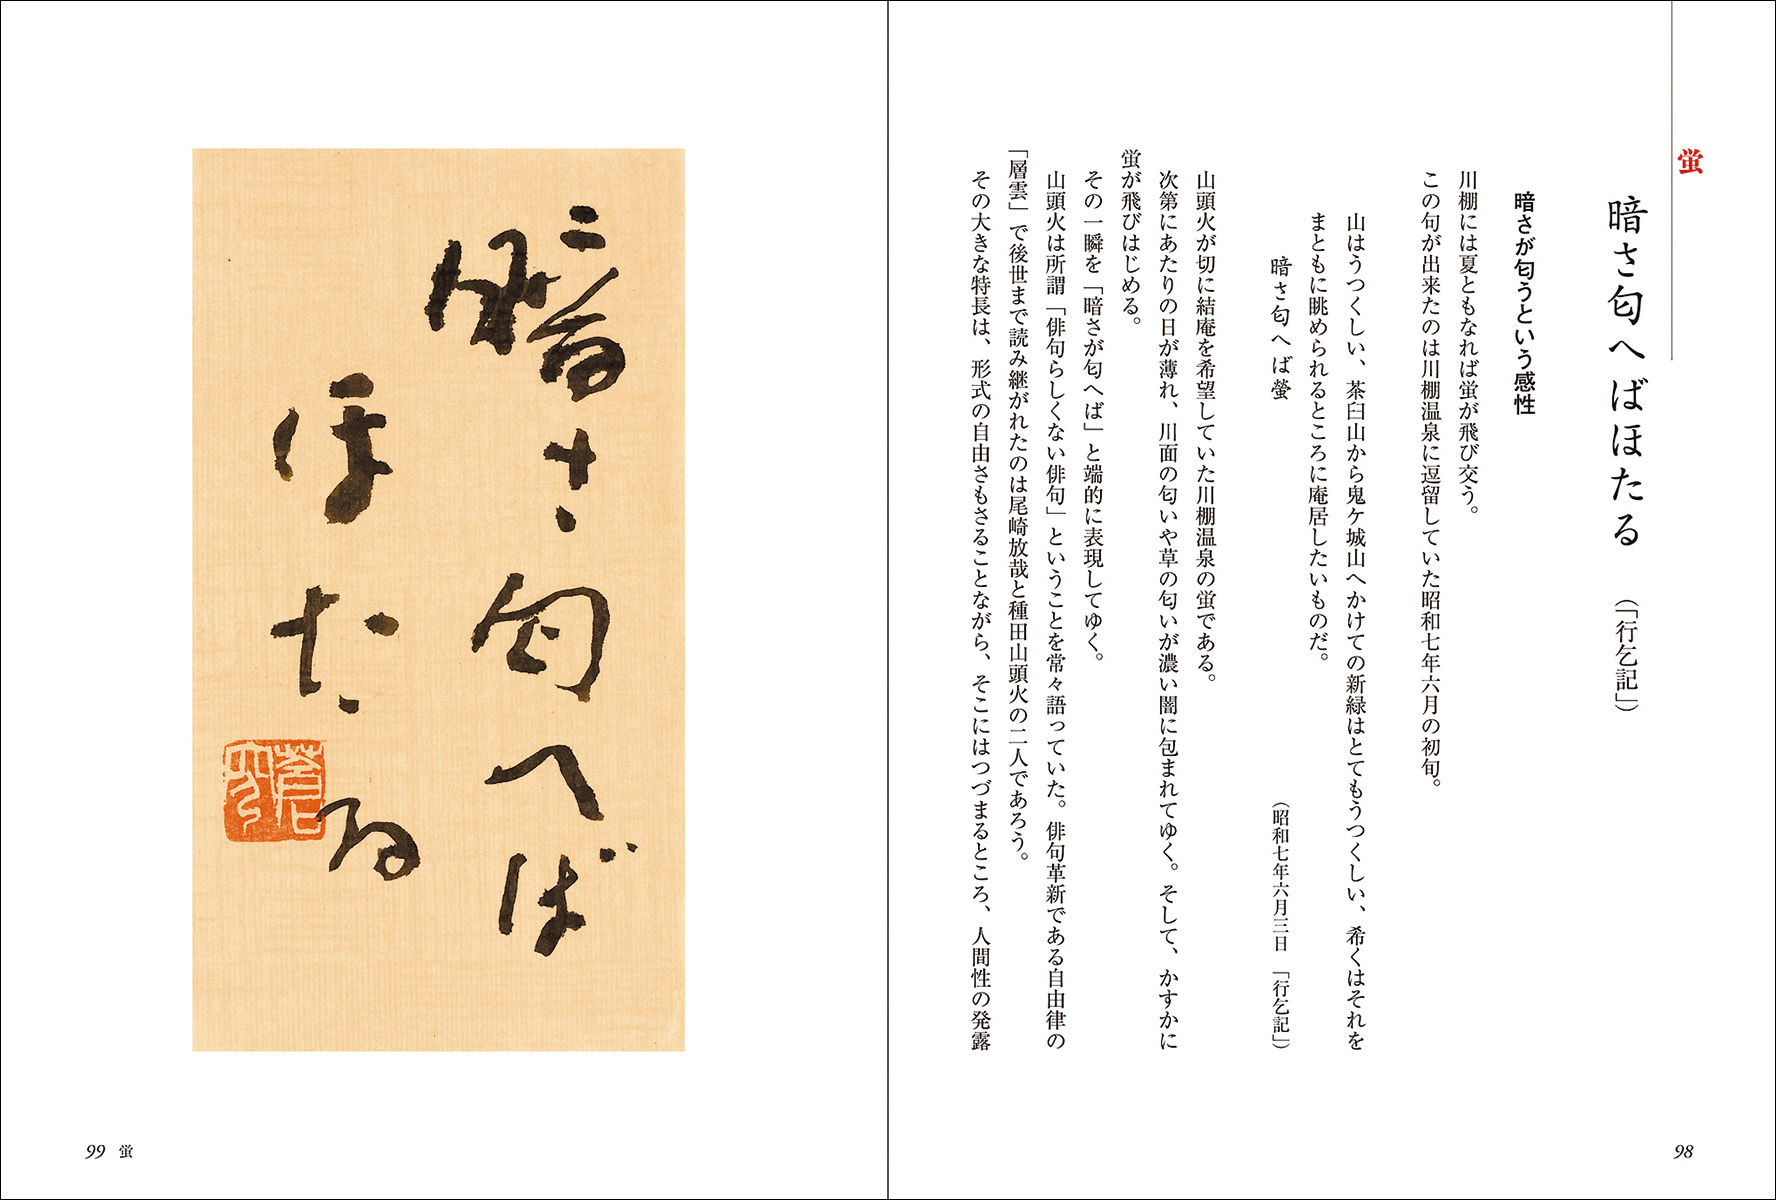 蛍
暗さ匂へばほたる （「行乞記」）
暗さが匂うという感性
川棚には夏ともなれば蛍が飛び交う。
この句が出来たのは川棚温泉に逗留していた昭和七年六月の初旬。
山はうつくしい、茶臼山から鬼ケ城山へかけての新緑はとてもうつくしい、希くはそれを
まともに眺められるところに庵居したいものだ。
暗さ匂へば螢 （昭和七年六月三日 「行乞記」）
山頭火が切に結庵を希望していた川棚温泉の蛍である。
次第にあたりの日が薄れ、川面の匂いや草の匂いが濃い闇に包まれてゆく。そして、かすかに
蛍が飛びはじめる。
その一瞬を「暗さが匂へば」と端的に表現してゆく。
山頭火は所謂「俳句らしくない俳句」ということを常々語っていた。俳句革新である自由律の
「層雲」で後世まで読み継がれたのは尾崎放哉と種田山頭火の二人であろう。
その大きな特長は、形式の自由さもさることながら、そこにはつづまるところ、人間性の発露
98
暗さ匂へば
ほたる
99 蛍